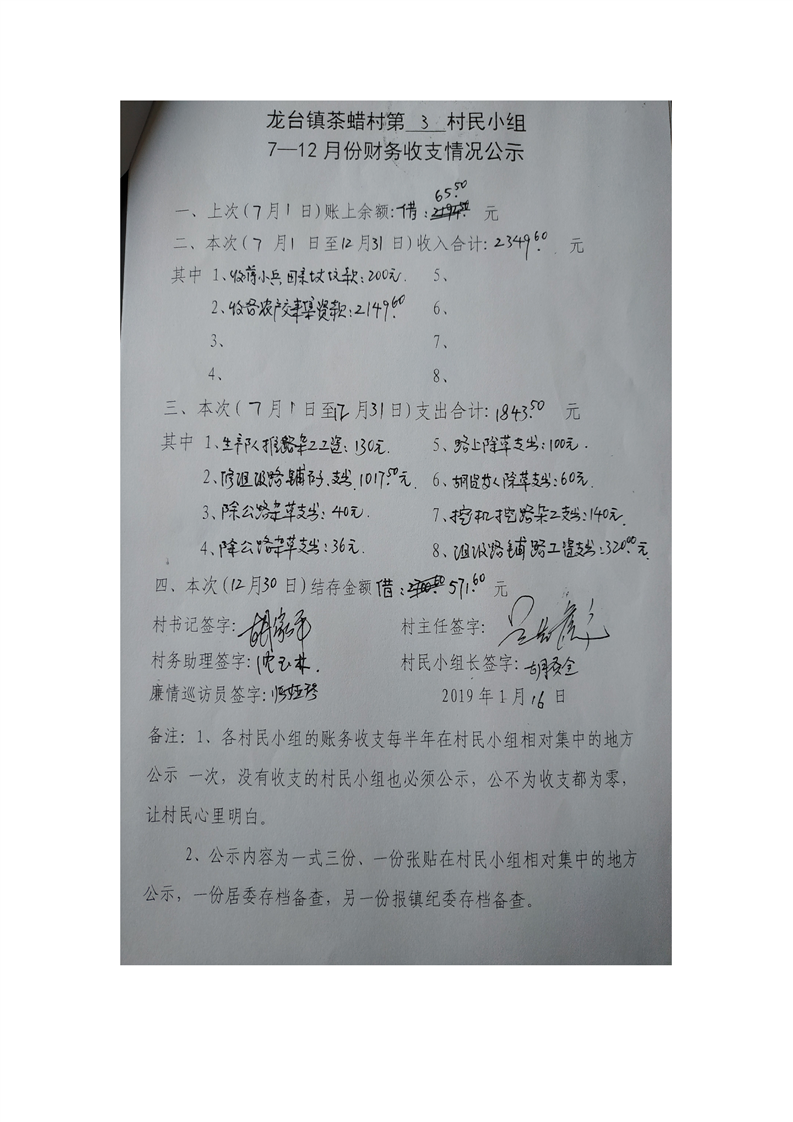 龙台镇茶蜡村第 3 村民小组
7—12月份财务收支情况公示
65.50
一、上次(7月1日)账上余额:借: 元
二、本次(7月1日至12月31日)收入合计:2349.60 元
其中 1、收蒋小兵 坟坑款:200元. 5、
2、收各农户交 集资款:2149.60 6、
3、 7、
4、 8、
三、本次(7月1日至12月31日)支出合计:1843.50 元
其中 1、生产队推路杂工工资:130元. 5、路上除草支出:100元.
2、修组级路铺砂、支出1017.50元. 6、胡 除草支出:60元.
3、除公路杂草支出:40元. 7、挖机挖路杂工支出:140元.
4、除公路杂草支出:36元. 8、组级路铺路工资支出:320.00元.
四、本次(12月30日)结存金额借: 571.60 元
村书记签字: 村主任签字:
村务助理签字:沈玉林. 村民小组长签字:胡
廉情巡访员签字: 2019年1月16日
备注:1、各村民小组的账务收支每半年在村民小组相对集中的地方
公示 一次,没有收支的村民小组也必须公示,公不为收支都为零,
让村民心里明白。
2、公示内容为一式三份、一份张贴在村民小组相对集中的地方
公示,一份居委存档备查,另一份报镇纪委存档备查。